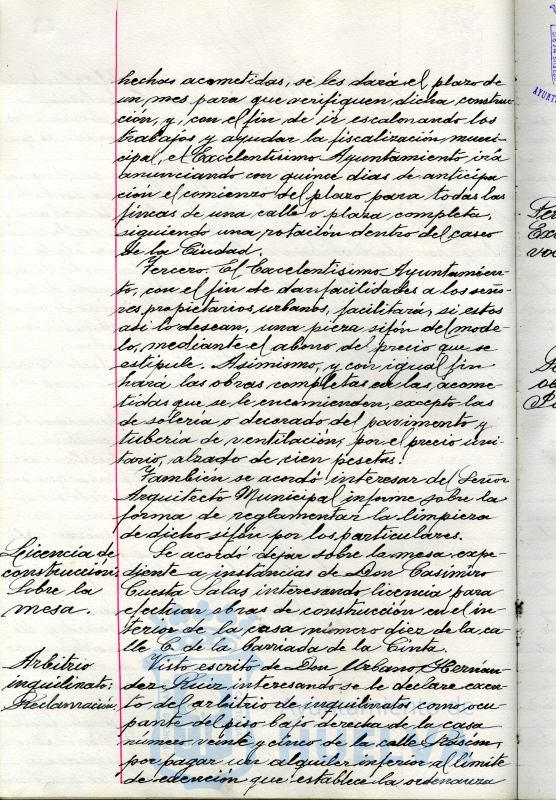 hechas acometidas, se les dará el plazo de
un mes para que verifiquen dicha construc-
ción, y, con el fin de ir escalonando los
trabajos y ayudar la fiscalización muni-
cipal, el Excelentísimo Ayuntamiento irá
anunciando con quince dias de anticipa-
ción el comienzo del plazo para todas las
fincas de una calle o plaza completa,
siguiendo una rotación dentro del casco
de la Ciudad.
Tercero. El Excelentísimo Ayuntamien-
to, con el fin de dar facilidades a los seño-
res propietarios urbanos, facilitará, si estos
asi lo desean, una pieza sifón del mode-
lo, mediante el abono del precio que se
estipule. Asimismo, y con igual fin
hará las obras completas en las acome-
tidas que se le encomienden, excepto las
de solería o decorado del pavimento y
tuberia de ventilación, por el precio uni-
tario, alzado de cien pesetas.
También se acordó interesar del Señor
Arquitecto Municipal informe sobre la
forma de reglamentar la limpieza
de dicho sifón por los particulares.
Licencia de
construcción
Sobre la
mesa.
Se acordó dejar sobre la mesa expe-
diente a instancias de Don Casimiro
Cuesta Salas interesando licencia para
efectuar obras de construcción en el in-
terior de la casa número diez de la ca-
lle C. de la barriada de la Cinta.
Arbitrio
inquilinato:
Reclamación.
Visto escrito de Don Urbano Hernán-
dez Ruiz interesando se le declare exen-
to del arbitrio de inquilinato como ocu-
pante del piso bajo derecha de la casa
número veinte y cinco de la calle Rascón,
por pagar un alquiler inferior al límite
de exención que establece la ordenanza